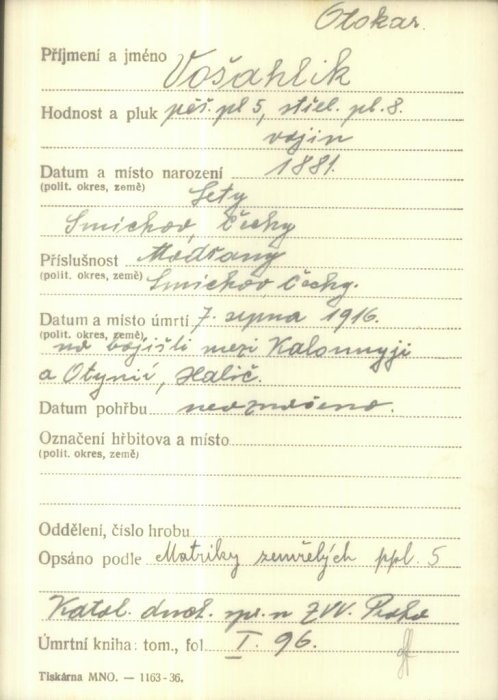 Otokar.
Příjmení a jméno Vošahlik
Hodnost a pluk pěš. pl 5, střel. pl. 8.
vojín
Datum a místo narození 1881.
(polit. okres, země) Lety
Smichov, Čechy
Příslušnost Modřany
(polit. okres, země) Smichov, Čechy.
Datum a místo úmrtí 7. srpna 1916.
(polit. okres, země) na bojišti mezi Kalomyjí
a Otynií, Halič.
Datum pohřbu neoznačeno.
Označení hřbitova a místo
(polit. okres, země)
Oddělení, číslo hrobu
Opsáno podle Matriky zemřelých ppl. 5
Katol. duch. spr. n ZVV. Praha
Úmrtní kniha: tom., fol. I. 96.
Tiskárna MNO. — 1163-36.